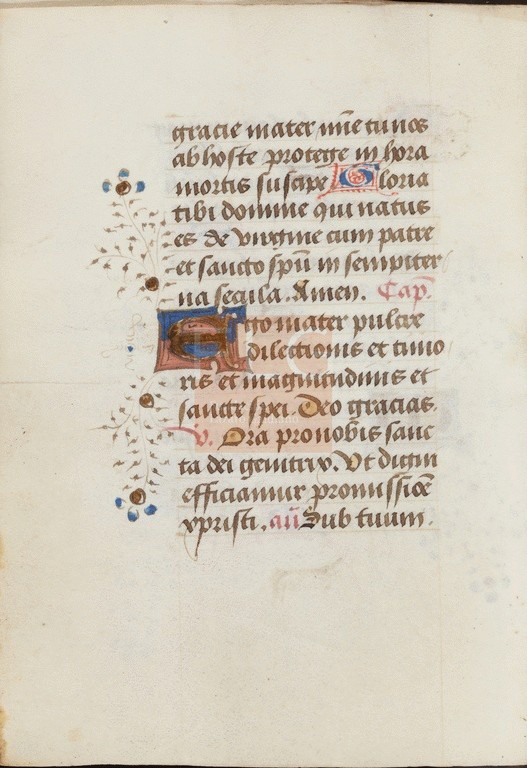 gracie mater mīe tu nos
ab hoste protege in hora
mortis suscipe Gloria
tibi domine qui natus
es de virgine cum patre
et sancto spū in sempiter
na secula. Amen. Cap̄.
Ego mater pulcre
dilectionis et timo
ris et magnitudinis et
sancte spei. Deo gracias.
V. Ora pro nobis sanc
ta dei genitrix. Vt digni
efficiamur promissiōe
xpristi. an̄ Sub tuum.